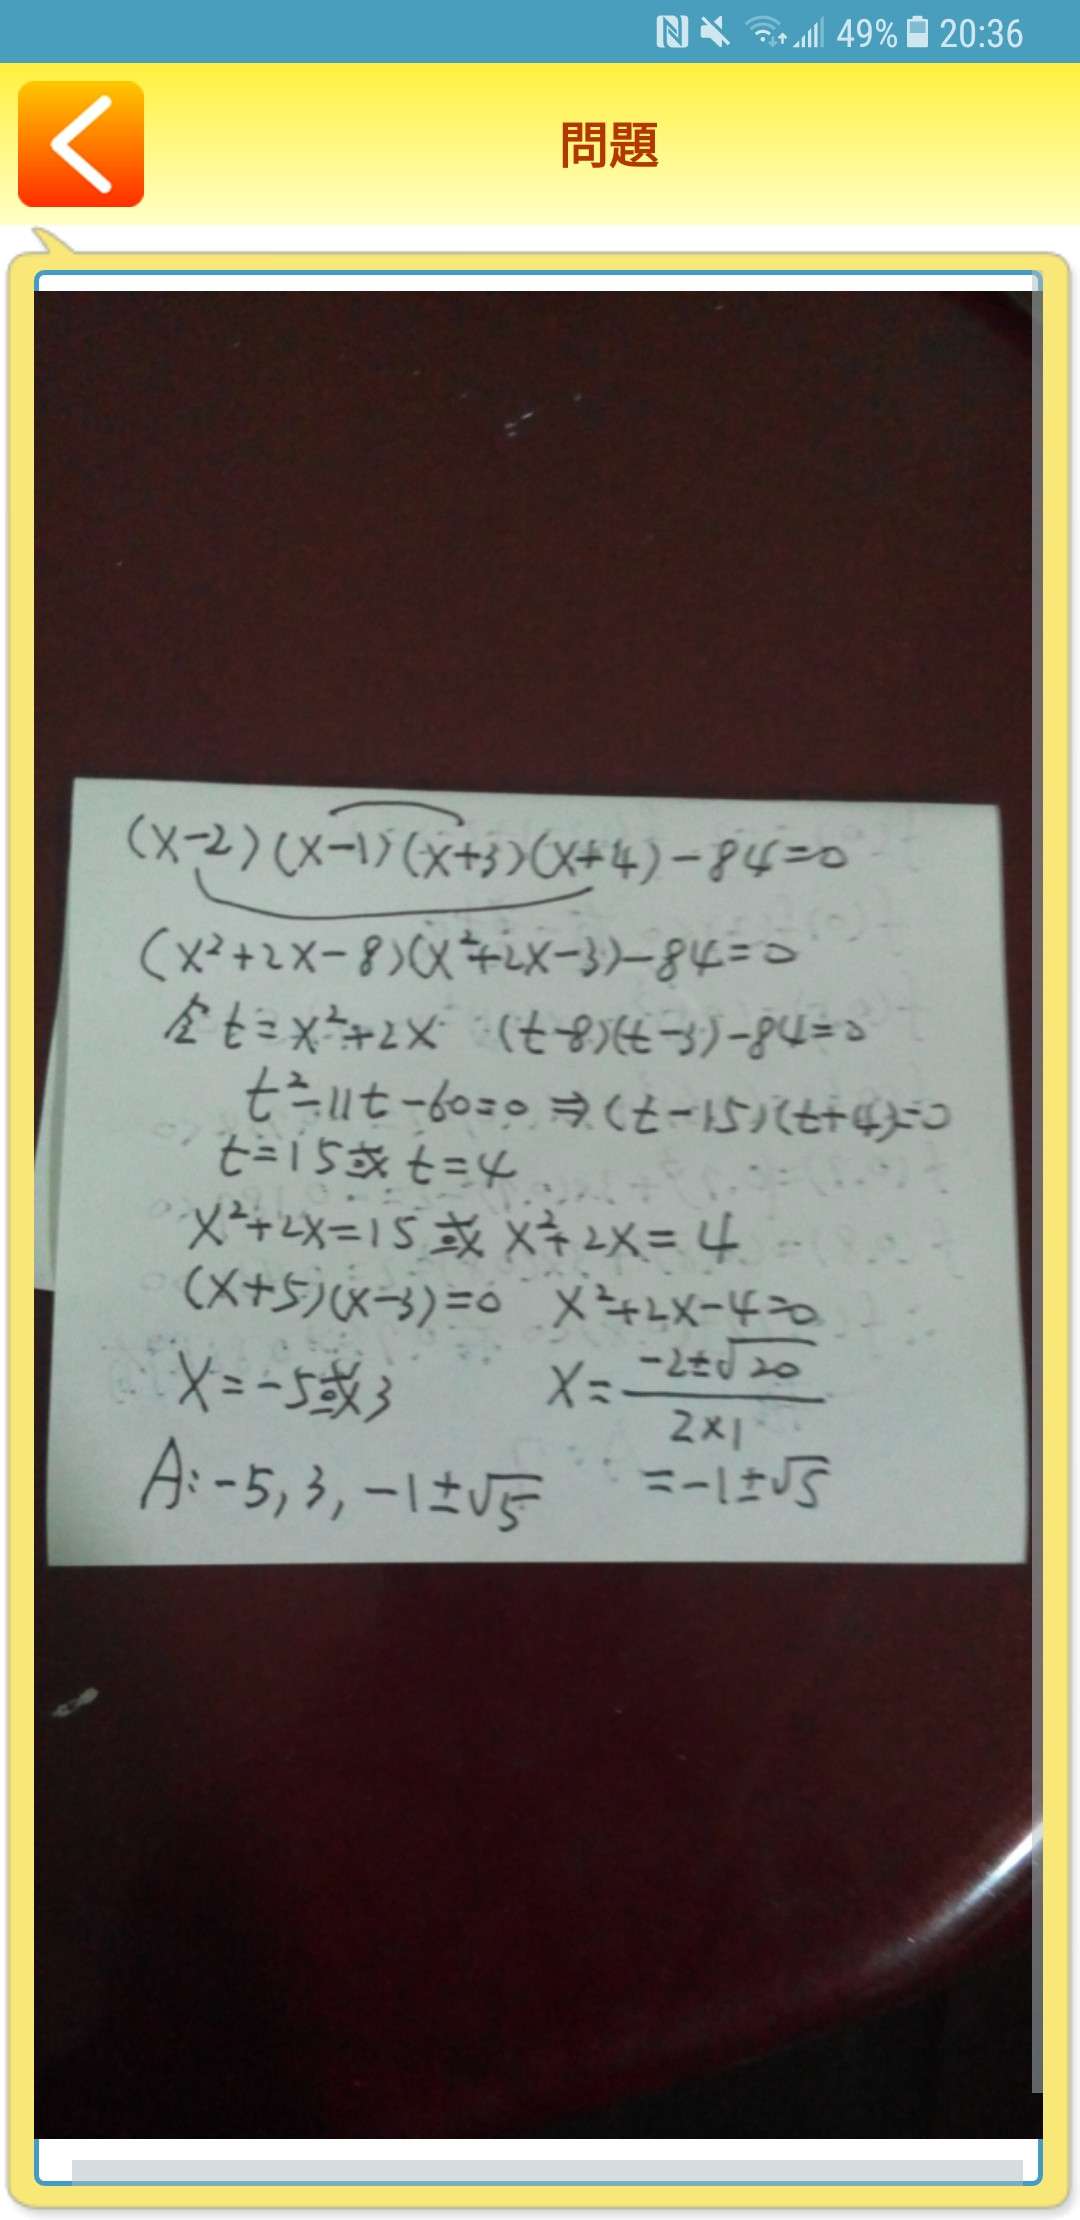 49% 20:36
問題
(x-2)(x-1)(x+3)(x+4)-84=0
(x²+2x-8)(x²+2x-3)-84=0
令t=x²+2x (t-8)(t-3)-84=0
t²-11t-60=0⇒(t-15)(t+4)=0
t=15或t=4
x²+2x=15或x²+2x=4
(x+5)(x-3)=0 x²+2x-4=0
x=-5或3 x=\frac{-2±√20}{2×1}
A:-5,3,-1±√5 =-1±√5